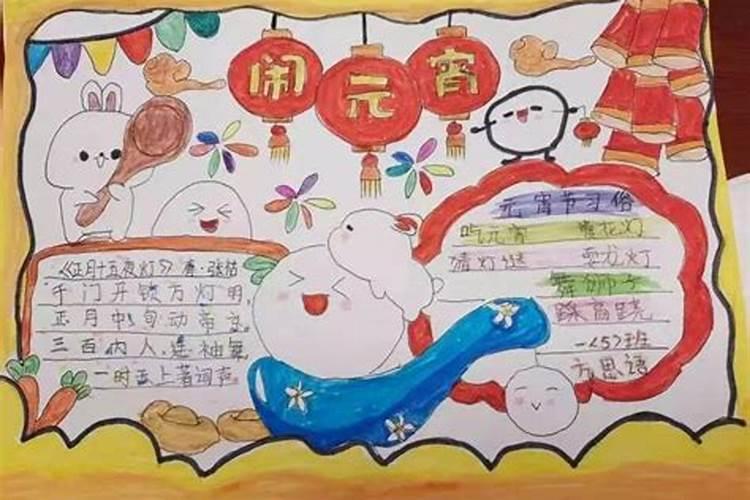 闹元宵
《正月十五夜灯》唐·张祜
千门开锁万灯明,
正月中旬动帝京
三百内人连袖舞,
一时天上著词声。
元宵节习俗
吃元宵 赏花灯
猜灯谜 耍龙灯
舞狮子
踩高跷
一<5>班
方思语